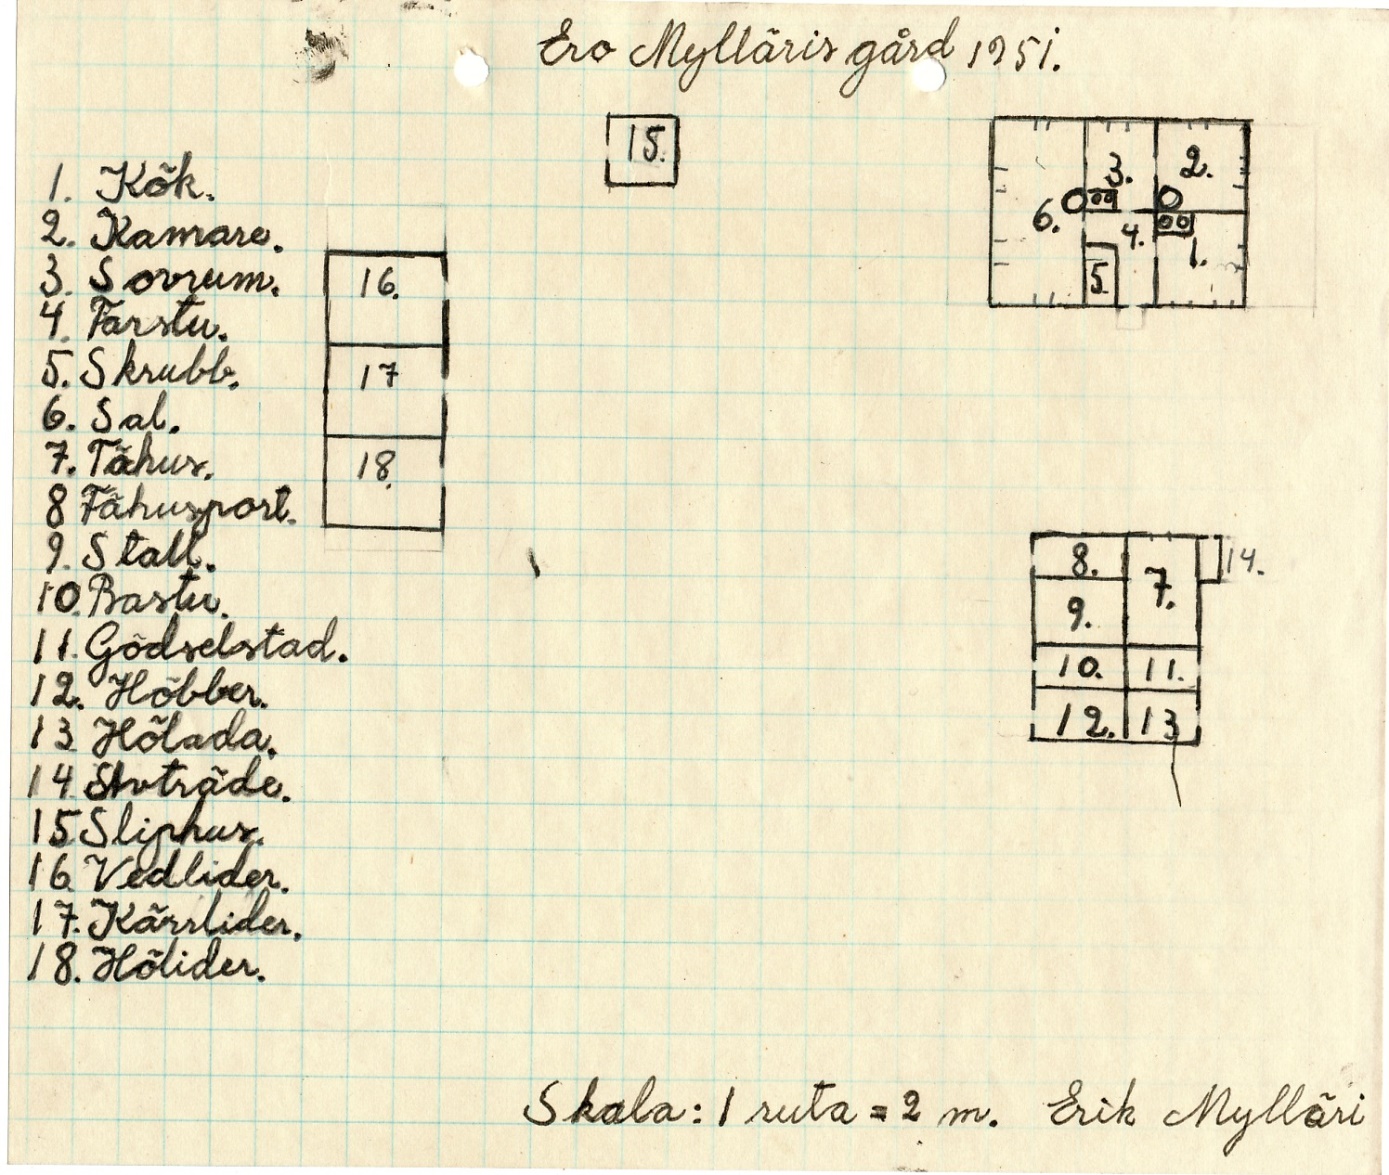 Ero Mylläris gård 1951.
1. Kök.
2. Kamare.
3. Sovrum.
4. Farstu.
5. Skrubb.
6. Sal.
7. Fähus.
8 Fähusport.
9. Stall.
10. Bastu.
11. Gödselstad.
12. Höbber.
13 Hölada.
14 Avträde.
15 Sliphus.
16 Vedlider.
17. Kärrlider.
18. Hölider.
15.
16.
17
18.
3.
2.
6.
4.
1.
5.
8.
7.
14.
9.
10.
11.
12.
13
Skala: 1 ruta = 2 m. Erik Mylläri